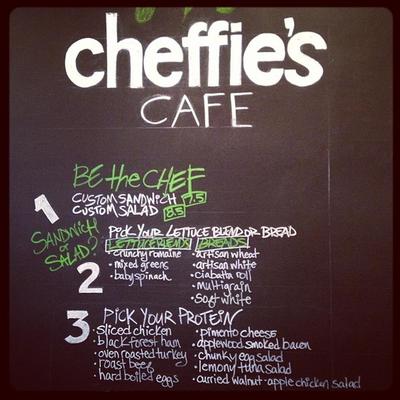 cheffie's
CAFE
BE the CHEF
1
CUSTOM SANDWICH 7.5
CUSTOM SALAD 8.5
SANDWICH
SALAD?
2
PICK YOUR LETTUCE BLEND OR BREAD
LETTUCE BLENDS BREADS
• crunchy romaine
• mixed greens
• baby spinach
• artisan wheat
• artisan white
• ciabata roll
• multigrain
• soft white
3 PICK YOUR PROTEIN
• sliced chicken
• black forest ham
• oven roasted turkey
• roast beef
• hard boiled eggs
• pimento cheese
• applewood smoked bacon
• chunky egg salad
• lemony tuna salad
• curried walnut-apple chicken salad